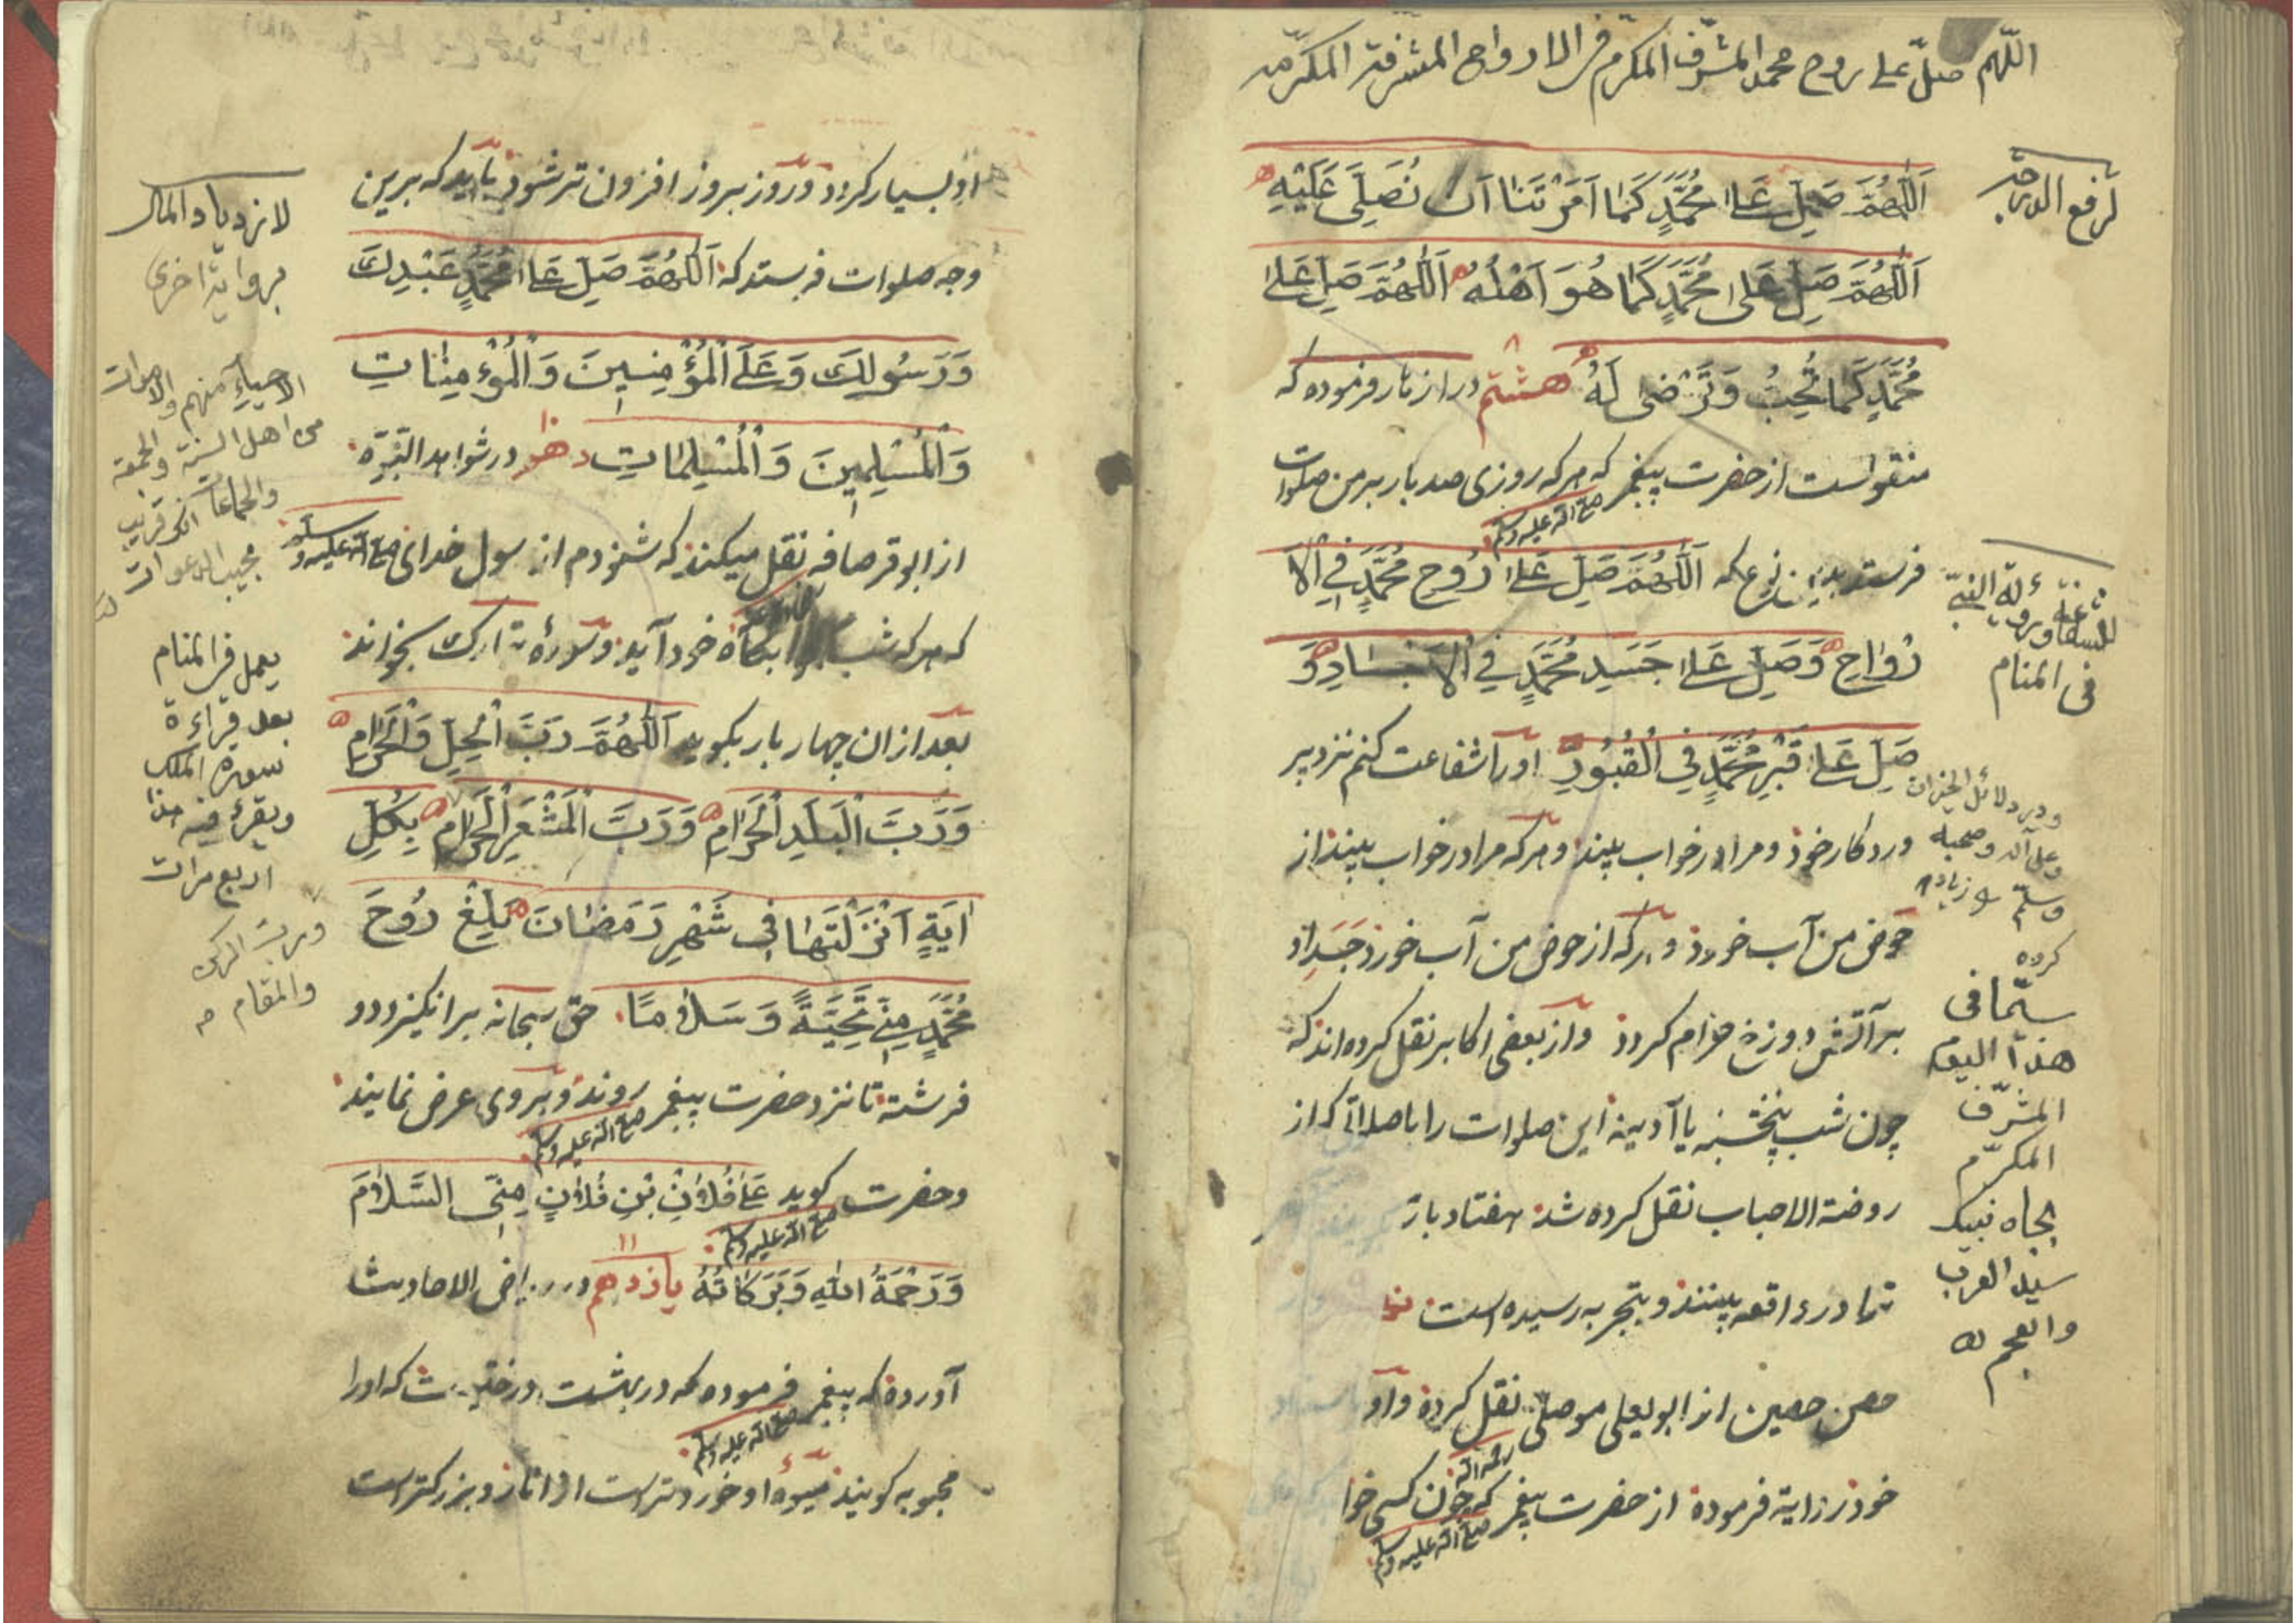 اللهم صل على روح محمد المشرف المكرم في الارواح المشرفة المكرمة
لرفع الدرجة
اَللّٰهُمَّ صَلِّ عَلٰى مُحَمَّدٍ كَمَا اَمَرْتَنَا اَنْ نُصَلِّىَ عَلَيْهِ
اَللّٰهُمَّ صَلِّ عَلٰى مُحَمَّدٍ كَمَا هُوَ اَهْلُهُ اَللّٰهُمَّ صَلِّ عَلٰى
مُحَمَّدٍ كَمَا تُحِبُّ وَتَرْضٰى لَهُ هشتم در ازنار فرموده كه
منقولست از حضرت پيغمبر صلى الله عليه وسلم كه هركه روزى صد بار بر من صلوات
فرستد بدين نوع كه اَللّٰهُمَّ صَلِّ عَلٰى رُوحِ مُحَمَّدٍ فِي الْاَ
رْوَاحِ وَصَلِّ عَلٰى جَسَدِ مُحَمَّدٍ فِي الْاَجْسَادِ وَ
صَلِّ عَلٰى قَبْرِ مُحَمَّدٍ فِي الْقُبُورِ اورا شفاعت كنم نزد پر
وردكار خود ومرا در خواب بيند وهركه مرا در خواب بيند از
حوض من آب خورد وهركه از حوض من آب خورد جَسَدِ او
بر آتش دوزخ حرام كردد واز بعضى اكابر نقل كرده اند كه
چون شب پنجشنبه يا آدينه اين صلوات را با صلواتى كه از
روضة الاحباب نقل كرده شد هفتاد بار
تا در واقعه بينند وبتجربه رسيده است
حصن حصين از ابو يعلى موصلى رحمه الله نقل كرده واو
خود روايت فرموده از حضرت پيغمبر صلى الله عليه وسلم كه چون كسى خوا
للشفاعة ورؤية النبى
فى المنام
ودر دلائل الخيرات
وعلى آله وصحبه
وسلم زياده
كرده
سيما فى
هذا اليوم
المشرف
المكرم
بجاه نبيك
سيد العرب
والعجم
او بسيار كردد وروز بروز افزون تر شود بايد كه برين
وجه صلوات فرستد كه اَللّٰهُمَّ صَلِّ عَلٰى مُحَمَّدٍ عَبْدِكَ
وَرَسُولِكَ وَعَلَى الْمُؤْمِنِينَ وَالْمُؤْمِنَاتِ
وَالْمُسْلِمِينَ وَالْمُسْلِمَاتِ دهم در شواهد النبوة
از ابو قرصافه نقل ميكند كه شنودم از رسول خداى صلى الله عليه وسلم
كه هركه شب بخوابكاه خود آيد وسورهٔ تبارك بخواند
بعد از ان چهار بار بكويد اَللّٰهُمَّ رَبَّ الْحِلِّ وَالْحَرَامِ
وَرَبَّ الْبَلَدِ الْحَرَامِ وَرَبَّ الْمَشْعَرِ الْحَرَامِ بِكُلِّ
اٰيَةٍ اَنْزَلْتَهَا فِى شَهْرِ رَمَضَانَ بَلِّغْ رُوحَ
مُحَمَّدٍ مِنِّى تَحِيَّةً وَسَلَامًا حق سبحانه بر انكيزد دو
فرشته تا نزد حضرت پيغمبر صلى الله عليه وسلم روند وبروى عرض نمايند
وحضرت صلى الله عليه وسلم كويد عَلٰى فُلَانِ بْنِ فُلَانٍ مِنِّى السَّلَامُ
وَرَحْمَةُ اللّٰهِ وَبَرَكَاتُهُ يازدهم در رياض الاحاديث
آورده كه پيغمبر صلى الله عليه وسلم فرموده كه در بهشت درختيست كه اورا
محبوبه كويند ميوهٔ او خوردترست از انار وبزركترست
لازدياد المال
برواية اخرى
الاحياء منهم والاموات
من اهل السنة والجمعة
والجماعات انك قريب
مجيب الدعوات
يعمل فى المنام
بعد قراءة
سورة الملك
ويقرء فيه هذا
اربع مرات
ورب الركن
والمقام